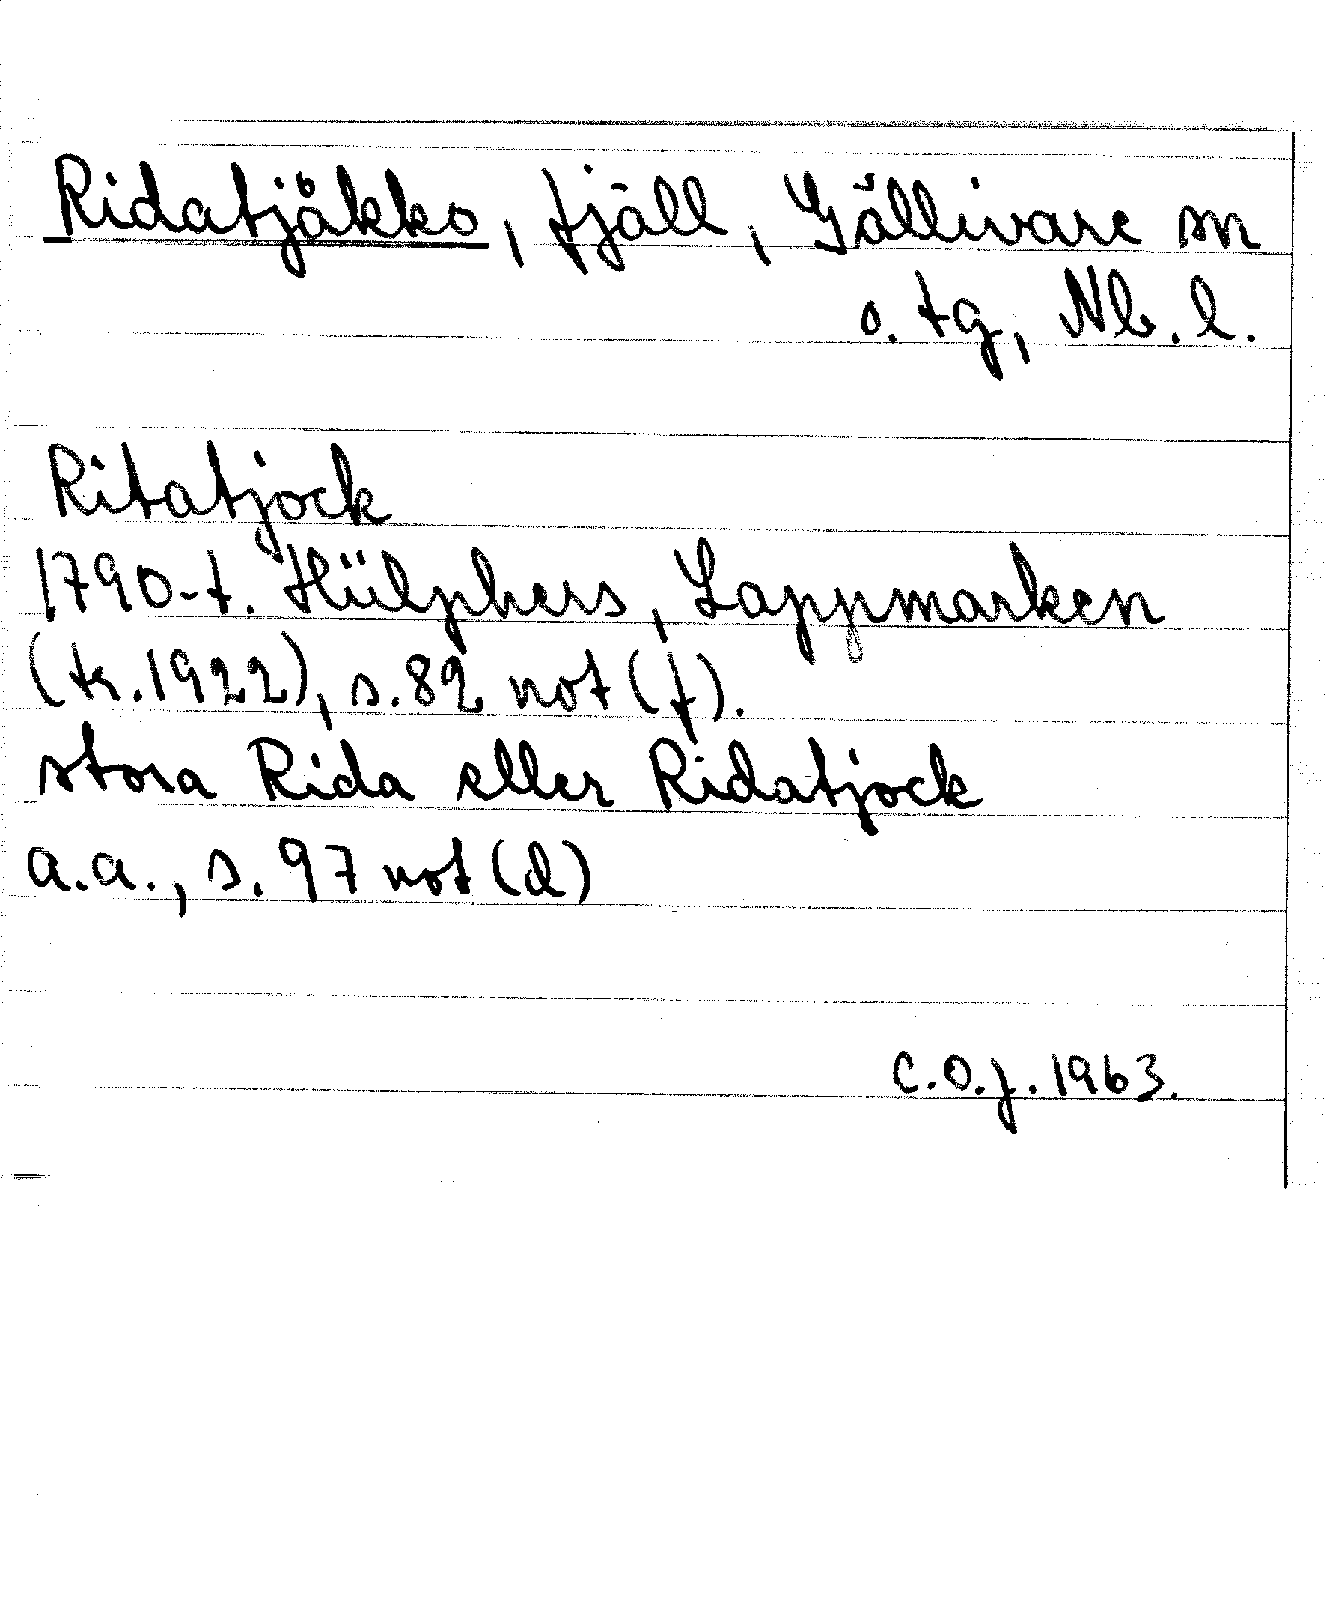 Ridatjåkko, fjäll, Gällivare sn
o. tg, Nb. l.
Ritatjock
1790-t. Hülphers, Lappmarken
(tr. 1922), s. 82 not (f).
stora Rida eller Ridatjock
a.a., s. 97 not (d)
C.O.J. 1963.